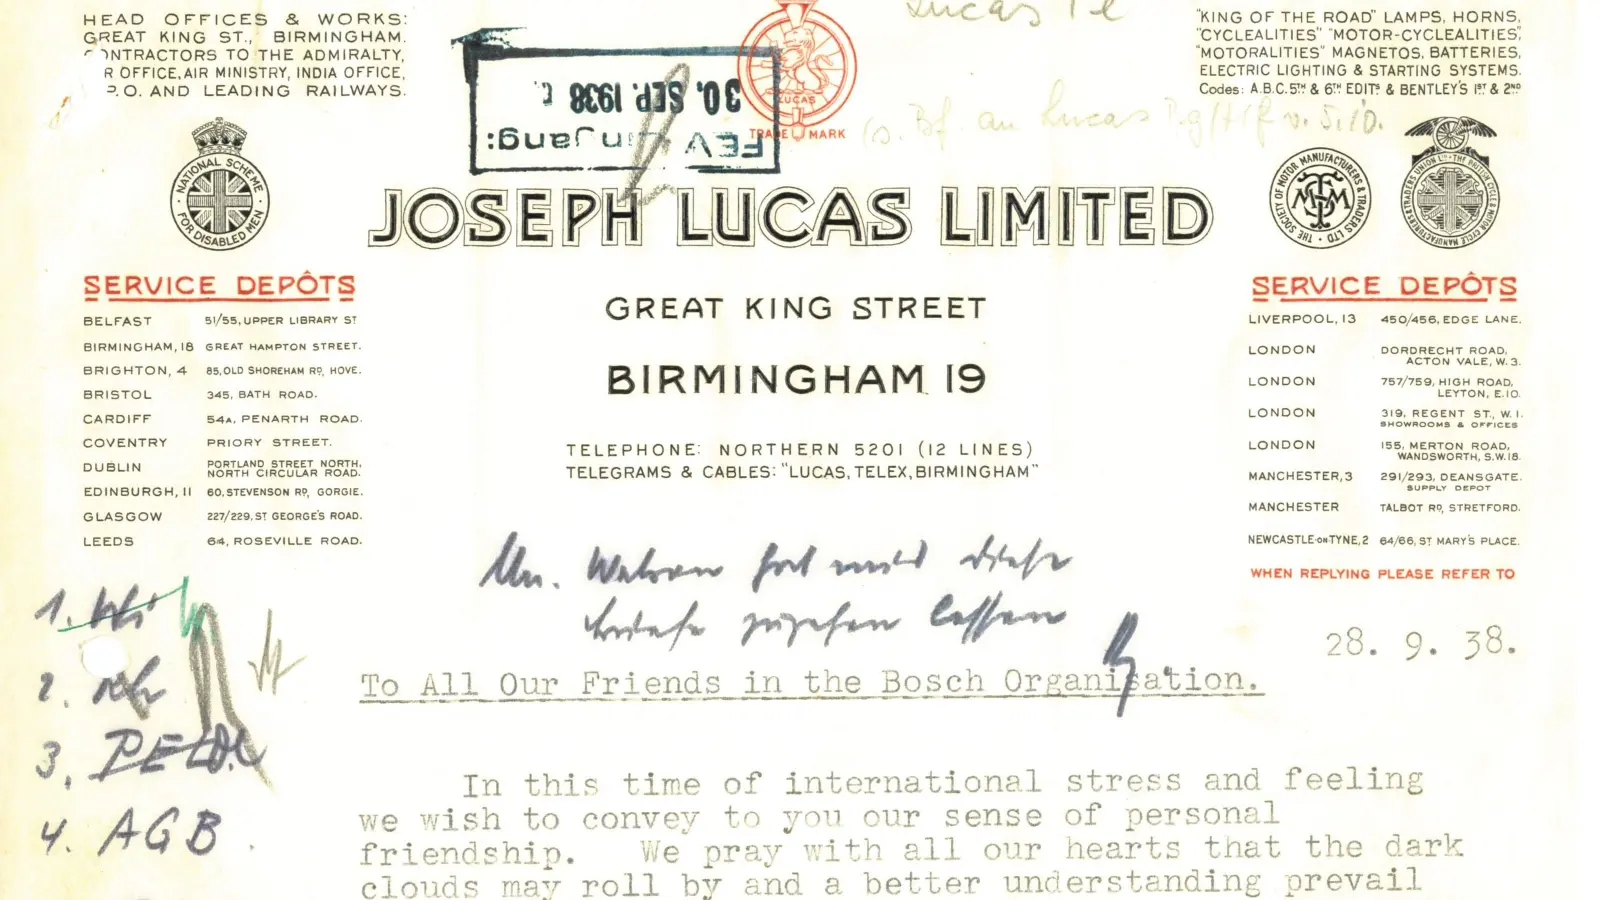 HEAD OFFICES & WORKS:
GREAT KING ST., BIRMINGHAM.
CONTRACTORS TO THE ADMIRALTY,
R OFFICE, AIR MINISTRY, INDIA OFFICE,
P.O. AND LEADING RAILWAYS.
Lucas
"KING OF THE ROAD" LAMPS, HORNS,
"CYCLEALITIES" "MOTOR-CYCLEALITIES",
"MOTORALITIES" MAGNETOS, BATTERIES,
ELECTRIC LIGHTING & STARTING SYSTEMS.
Codes: A.B.C. 5TH & 6TH EDITS & BENTLEY'S 1ST & 2ND
FEV Eingang:
30. SEP. 1938
LUCAS
TRADE MARK
an Lucas
v. 5.10.
NATIONAL SCHEME
FOR DISABLED MEN
THE SOCIETY OF MOTOR MANUFACTURERS & TRADERS LTD
JOSEPH LUCAS LIMITED
GREAT KING STREET
BIRMINGHAM. 19
TELEPHONE: NORTHERN 5201 (12 LINES)
TELEGRAMS & CABLES: "LUCAS, TELEX, BIRMINGHAM"
SERVICE DEPÔTS
BELFAST 51/55, UPPER LIBRARY ST
BIRMINGHAM, 18 GREAT HAMPTON STREET.
BRIGHTON, 4 85, OLD SHOREHAM RD, HOVE.
BRISTOL 345, BATH ROAD.
CARDIFF 54A, PENARTH ROAD.
COVENTRY PRIORY STREET.
DUBLIN PORTLAND STREET NORTH,
NORTH CIRCULAR ROAD.
EDINBURGH, 11 60, STEVENSON RD, GORGIE.
GLASGOW 227/229, ST GEORGE'S ROAD.
LEEDS 64, ROSEVILLE ROAD.
SERVICE DEPÔTS
LIVERPOOL, 13 450/456, EDGE LANE.
LONDON DORDRECHT ROAD,
ACTON VALE, W.3.
LONDON 757/759, HIGH ROAD,
LEYTON, E.10.
LONDON 319, REGENT ST., W.1.
SHOWROOMS & OFFICES
LONDON 155, MERTON ROAD,
WANDSWORTH, S.W.18.
MANCHESTER, 3 291/293, DEANSGATE.
SUPPLY DEPOT
MANCHESTER TALBOT RD, STRETFORD.
NEWCASTLE-ON-TYNE, 2 64/66, ST MARY'S PLACE.
WHEN REPLYING PLEASE REFER TO
Mr. Watson hat mir diese
Briefe zugehen lassen
28. 9. 38.
1.
2.
3.
4. AGB.
To All Our Friends in the Bosch Organisation.
In this time of international stress and feeling
we wish to convey to you our sense of personal
friendship. We pray with all our hearts that the dark
clouds may roll by and a better understanding prevail